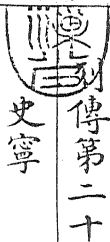 列傳第二十
史寧